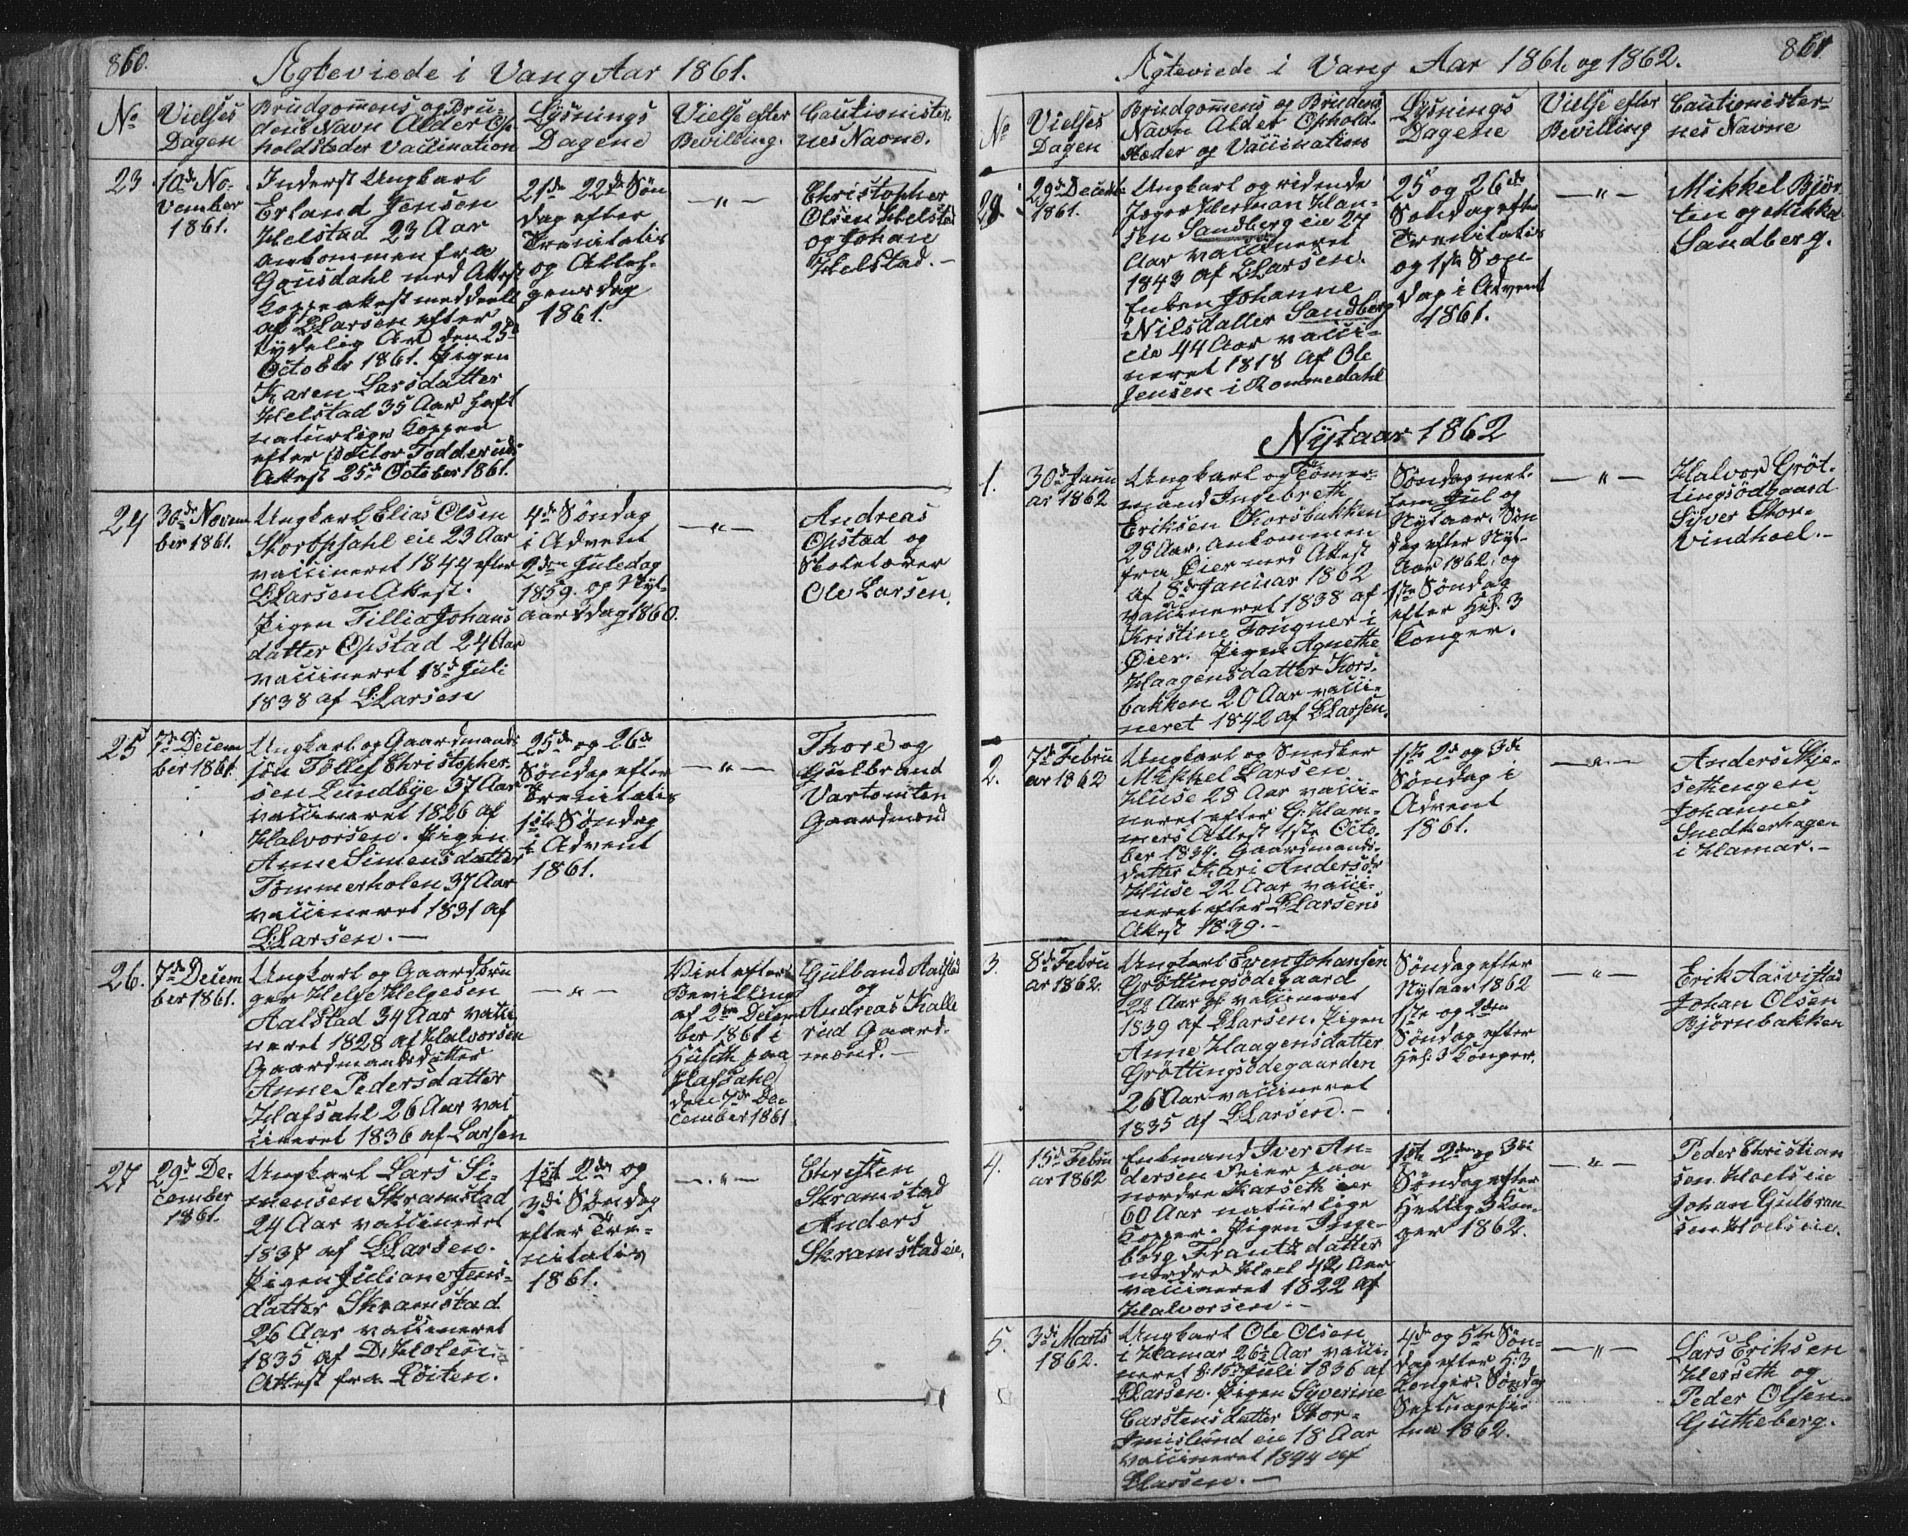 860.
Ægteviede i Vang Aar 1861.
No
Vielses
Dagen
Brudgommens og Bru-
dens Navn Alder Op-
holdsteder Vaccination
Lysnings
Dagene
Vielse efter
Bevilling.
Cautionister-
nes Navne.
23
10de No-
vember
1861.
Inderst Ungkarl
Erland Jensen
Helstad 23 Aar
ankommen fra
Gousdahl med Attest
Koppeattest meddeelt
af LLarsen efter
tydelig Ar den 25de
October 1861. Pigen
Karen Larsdatter
Helstad 35 Aar haft
naturlige Kopper
efter Doctor Fodderuds
Attest 25de October 1861.
21de 22de Søn
dag efter
Trenitatis
og Alleh.
gensdag
1861.
— " —
Christopher
Olsen Helstad
og Johan
Helstad. —
24
30de Novem
ber 1861.
Ungkarl Elias Olsen
eie 23 Aar
vaccineret 1844 efter
LLarsen Attest.
Pigen Tillia Johans
datter Opstad 24 Aar
vaccineret 18de Juli
1838 af LLarsen
4de Søndag
i Advent
2den Juledag
1859. og Nyt-
aarsdag 1860.
— " —
Andreas
Opstad og
Skolelærer
Ole Larsen.
25
7de Decem
ber 1861.
Ungkarl og Gaardmands
søn Tollef Christopher-
sen Lundbye 37 Aar
vaccineret 1826 af
Halvorsen. Pigen
Anne Simensdatter
Tommerholen 37 Aar
vaccineret 1831 af
LLarsen. —
25de og 26de
Søndag efter
Trenitatis
1ste Søndag
i Advent
1861.
— " —
Thore og
Gulbrand
Vartomten
Gaardmænd
26.
7de Decem
ber 1861.
Ungkarl og Gaardbru
ger Helge Helgesen
Aalstad 34 Aar vacci
neret 1828 af Halvorsen
Gaardmandsdatter
Anne Pedersdatter
Hafsahl 26 Aar vac
cineret 1836 af Larsen
— " —
Viet efter
Bevilling
af 2den Decem
ber 1861 i
Huseth paa
Hafsahl
den 7de De
cember 1861.
Gulband Aalstad
og
Andreas Kalle
rud Gaard-
mænd. —
27
29de De-
cember
1861.
Ungkarl Lars Si-
mensen Skramstad
24 Aar vaccineret
1837 af LLarsen.
Pigen Juliane Jens-
datter Skramstad
26 Aar vaccineret
1835 af D. Holens
Attest fra Løiten.
1ste 2den og
3di Søndag
efter Tre-
nitatis
1861.
— " —
Chresten
Skramstad
Anders
Skramstad eie.
861
Ægteviede i Vang Aar 1861. og 1862.
No
Vielses
Dagen
Brudgommens og Brudens
Navn Alder Ophold-
stæder og Vaccination
Lysnings
Dagene
Vielse efter
Bevilling
Cautionister-
nes Navne
28.
29de Decembr
1861.
Ungkarl og ridende
Jæger Herman Han-
sen Sandberg eie 27
Aar vaccineret
1843 af LLarsen.
Enken Johanne
Nilsdatter Sandberg
eie 44 Aar vacci-
neret 1818 af Ole
Jensen i Rommedahl
25 og 26de
Søndag efter
Trenitatis
og 1ste Søn
dag i Advent
1861.
— " —
Mikkel Bjør
ten og Mikkel
Sandberg.
Nytaar 1862
1.
30de Janu
ar 1862
Ungkarl og Tømer-
mand Ingebreth
Eriksen Korsbakken
25 Aar. ankommen
fra Øier med Attest
af 8de Januar 1862
vaccineret 1838 af
Kristine Fougner i
Øier. Pigen Agnethe
Haagensdatter Kors-
bakken 20 Aar vacci-
neret 1842 af LLarsen.
Søndag mel-
lem Jul og
Nytaar. Søn
dag efter Nyt-
Aar 1862. og
1ste Søndag
efter Hel. 3
Konger.
— " —
Halvor Grøt-
tingsødgaard
Syver Stor-
Vindhoel. —
2.
7de Febru
ar 1862
Ungkarl og Snedker
Mikkel Larsen
Huse 28 Aar vacci-
neret efter G. Ham-
mers Attest 1ste Octo-
ber 1834. Gaardmands-
datter Kari Andersdr
Huse 22 Aar vacci-
neret efter LLarsens
Attest 1839. —
1ste 2de og 3de
Søndag i
Advent
1861.
— " —
Anders Skje-
sethengen
Johannes
Snedkerhagen
i Hamar. —
3.
8de Febru
ar 1862.
Ungkarl Even Johansen
Grøttingsødegaard
22 Aar vaccineret
1839 af LLarsen. Pigen
Anne Haagensdatter
Grøttingsødegaarden
26 Aar vaccineret
1835 af LLarsen. —
Søndag efter
Nytaar 1862
1ste og 2den
Søndag efter
Hel: 3 Konger.
— " —
Erik Aasvistad
Johan Olsen
Bjørnbakken
4.
15de Febru
ar 1862
Enkmand Iver An-
dersen Seier paa
nordre Karseth eie
60 Aar naturlige
Kopper. Pigen Inge-
borg Frantzdatter
nordre Hoel 42 Aar
vaccineret 1822 af
Halvorsen. —
1ste 2den og 3di
Søndag efter
Hellig 3 Kon-
ger 1862.
— " —
Peder Christian
sen Hoelseie
Johan Gulbran
sen Hoelseie.
5.
3de Marts
1862.
Ungkarl Ole Olsen
i Hamar 26½ Aar vacci-
neret d: 15de Juli 1836 af
LLarsen. Pigen Syverine
Carstensdatter Stor-
Imislund eie 18 Aar
vaccineret 1844 af
LLarsen. —
4de og 5te Søn-
dag efter H: 3
Konger. Søndag
Septuagesi-
ma 1862.
— " —
Lars Eriksen
Herseth og
Peder Olsen
Gutheberg.